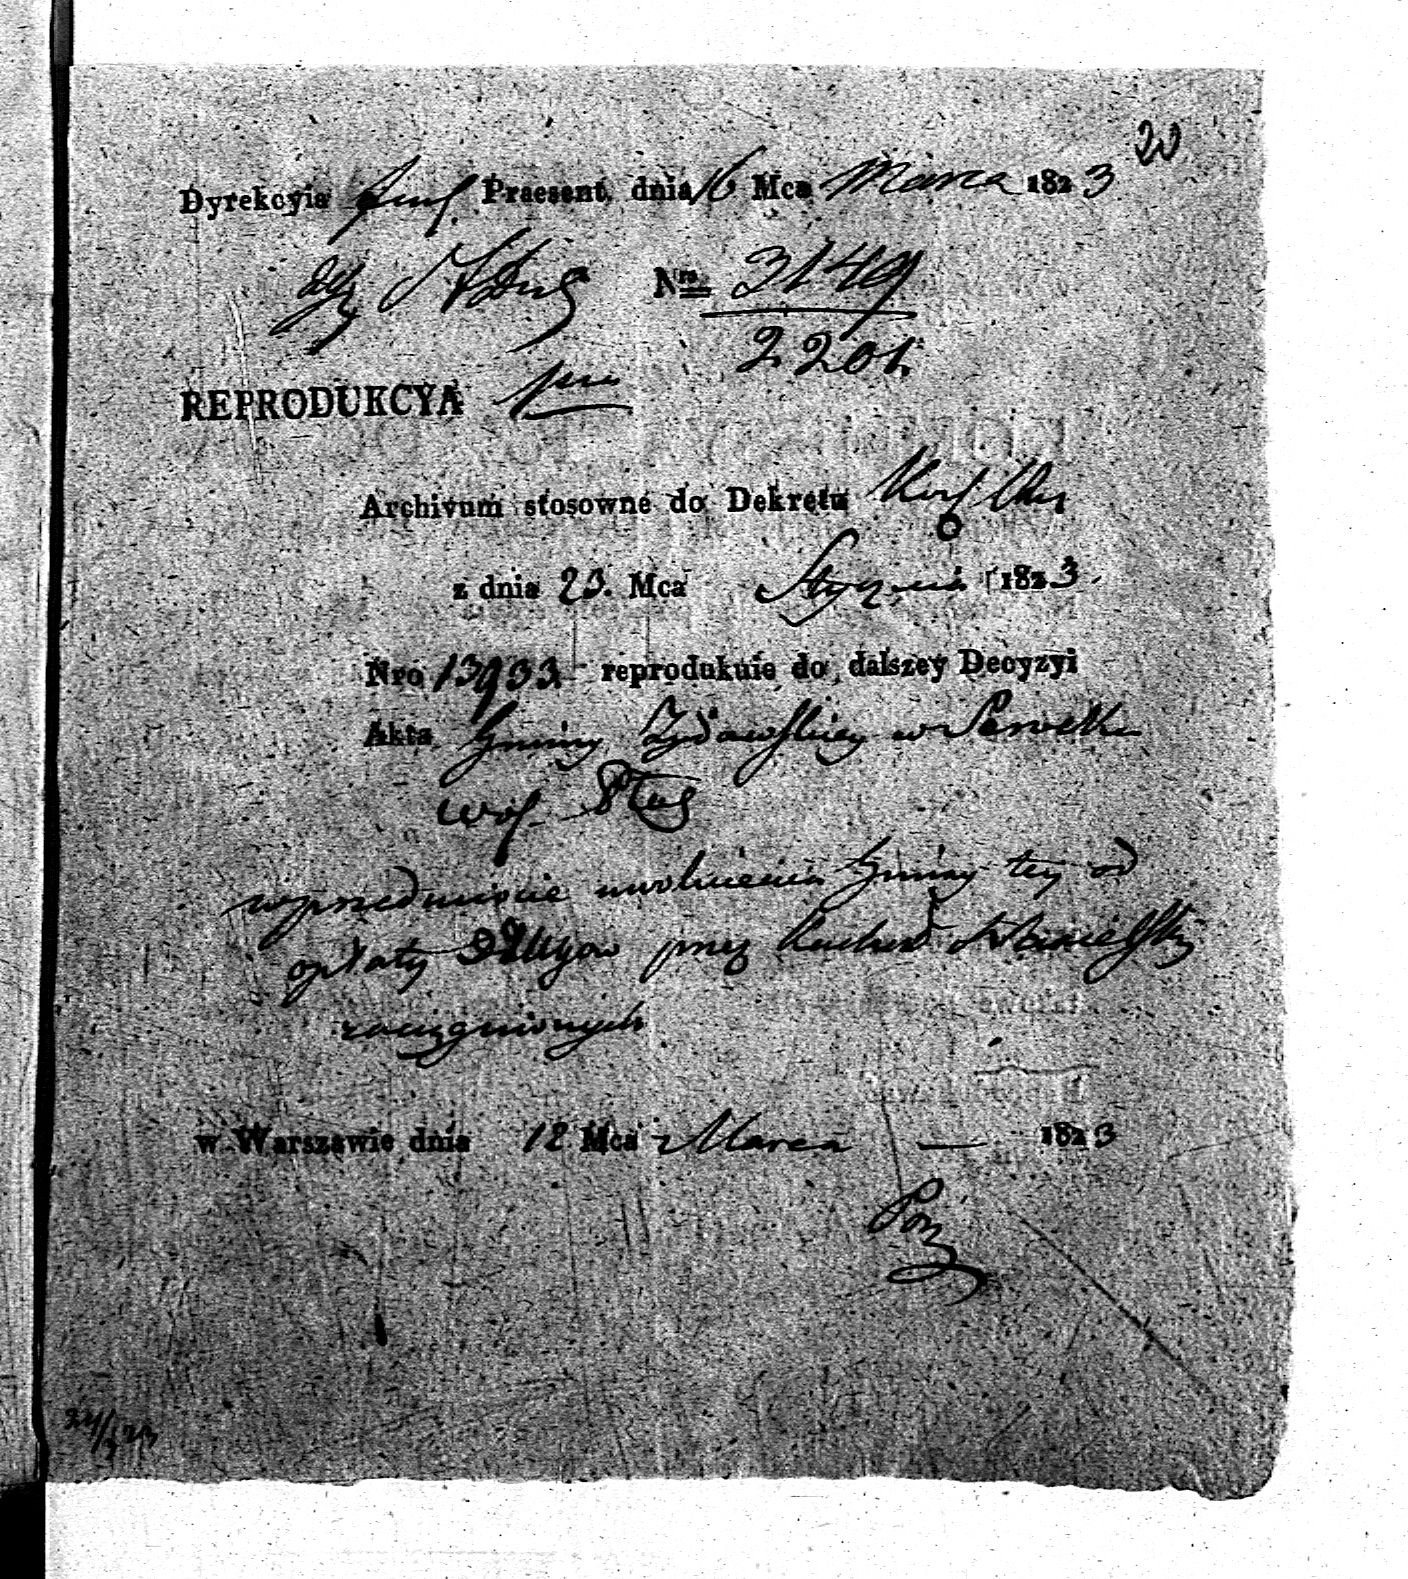 20
Dyrekcyia Praesent. dnia 16 Mca Marca 1823
Nro 3149
2201.
REPRODUKCYA
Archivum stosowne do Dekretu
z dnia 23. Mca Stycznia 1823.
Nro 13933. reprodukuie do dalszey Decyzyi
Akta Gminy Żydowskiey w Serocku
woj. Płag
w przedmiocie uwolnienia Gminy tey od
opłaty Długow przez Kachał
zaciągnionych
w Warszawie dnia 12 Mca Marca — 1823